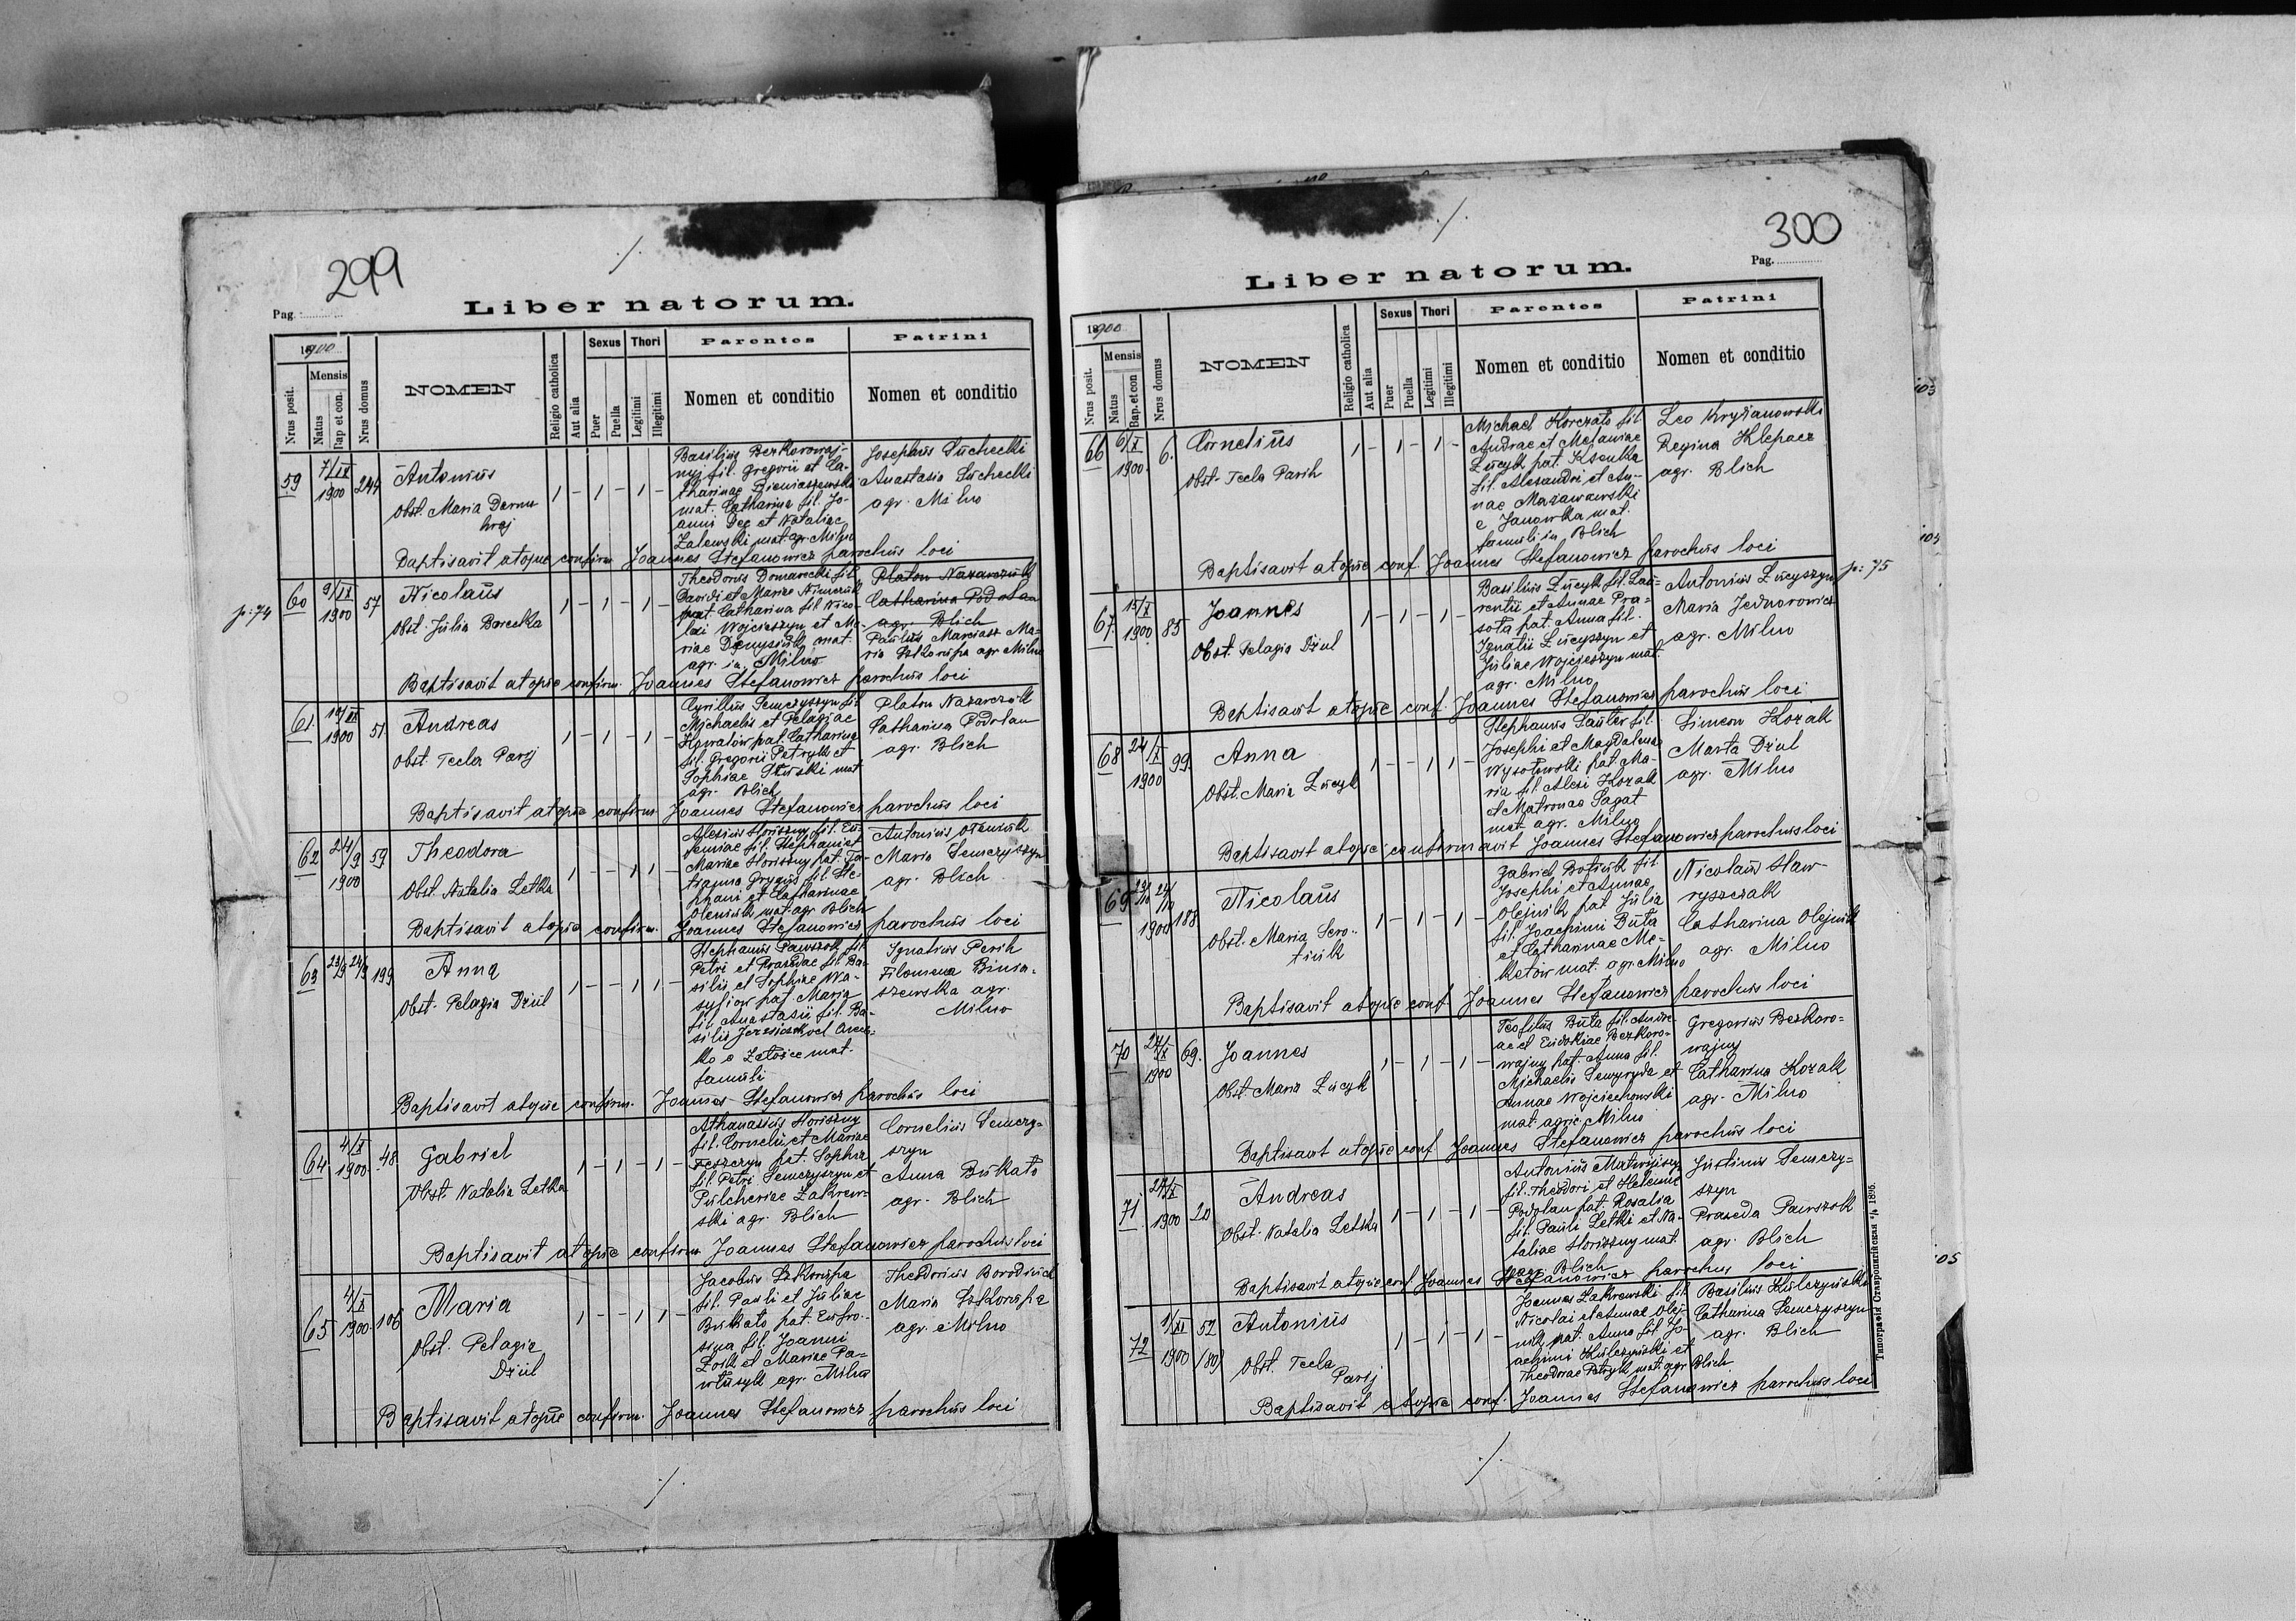 299
Pag.
Liber natorum.
1900
Nrus posit.
Mensis
Natus
Bap et con.
Nrus domus
NOMEN
Religio catholica
Aut alia
Sexus
Puer
Puella
Thori
Legitimi
Illegitimi
Parentes
Nomen et conditio
Patrini
Nomen et conditio
59 7/IX 1900 244
Antonius
Obst. Maria Dermo
hraj
1 - 1 - 1 -
Basilius Bezkorowaj-
nyj fil. Gregorii et Ca-
tharinae Bieniaszewska
mat. Catharina fil. Jo-
anni Dec et Nataliae
Zalewski mat. agr. Milno
Josephus Suchecki
Anastasia Suchecki
agr. Milno
Baptisavit atque confirm. Joannes Stefanowicz parochus loci
p: 74
60 9/IX 1900 57
Nicolaus
Obst. Julia Borecka
1 - 1 - 1 -
Theodorus Domarecki fil.
Davidi et Mariae Nimczuk
pat. Catharina fil. Nico-
lai Wojcieszyn et Ma-
riae Demysiuk mat.
agr. in Milno
Platon Nazarczuk
Catharina Podolan
agr. Blich
Paulus Marciasz Ma-
ria Szkorupa agr Milno
Baptisavit atque confirm. Joannes Stefanowicz parochus loci
61. 10/IX 1900 51.
Andreas
Obst. Tecla Parij
1 - 1 - 1 -
Cyrillus Semczyszyn fil
Michaelis et Pelagiae
pat. Catharina
fil. Gregorii Petryk et
Sophiae mat
agr. Blich
Platon Nazarczuk
Catharina Podolan
agr. Blich
Baptisavit atque confirm. Joannes Stefanowicz parochus loci
62 24/9 1900 59
Theodora
Obst. Natalia Letka
1 - - 1 1 -
Alexius Horiszny fil. Eu-
femiae fil. Stephani et
Mariae Horiszny pat. Ta-
fil. Ste-
phani et Catharinae
Olejnik mat. agr Blich
Antonius
Maria Semczyszyn
agr. Blich
Baptisavit atque confirm. Joannes Stefanowicz parochus loci
63 23/9 24/9 199
Anna
Obst. Pelagia Dziul
1 - - 1 1 -
Stephanus Pawszok fil.
Petri et Praxedae fil. Ba-
silii et Sophiae Wa-
pat. Maria
fil. Anastasii fil. Ba-
silii
e Załoźce mat.
famuli
Ignatius Perih
Filomena Binia-
szewska agr.
Milno
Baptisavit atque confirm. Joannes Stefanowicz parochus loci
64 4/X 1900 48
Gabriel
Obst. Natalia Letka
1 - 1 - 1 -
Athanasius Horiszny
fil. Cornelii et Mariae
Feszczyn pat. Sophia
fil. Petri Semczyszyn et
Pulcheriae Zakrew-
ski agr. Blich
Cornelius Semczy-
szyn
Anna Bukato
agr. Blich
Baptisavit atque confirm. Joannes Stefanowicz parochus loci
65 4/X 1900 106
Maria
Obst. Pelagia
Dziul
1 - - 1 1 -
Jacobus Szkorupa
fil. Pauli et Juliae
Bukato pat. Eufro-
sina fil. Joanni
et Mariae Pa-
agr. Milno
Theodorius Borodziuk
Maria Szkorupa
agr. Milno
Baptisavit atque confirm. Joannes Stefanowicz parochus loci
300
Pag.
Liber natorum.
1900
Nrus posit.
Mensis
Natus
Bap. et con
Nrus domus
NOMEN
Religio catholica
Aut alia
Sexus
Puer
Puella
Thori
Legitimi
Illegitimi
Parentes
Nomen et conditio
Patrini
Nomen et conditio
66 6/X 1900 6.
Cornelius
Obst. Tecla Parih
1 - 1 - 1 -
Michael Horczato fil.
Andrae et Melaniae
Łucyk pat. Ksenka
fil. Alexandri et An-
nae
e Janowka mat.
famuli in Blich
Leo Kryżanowski
Regina Klepacz
agr. Blich
Baptisavit atque conf. Joannes Stefanowicz parochus loci
67. 15/X 1900 85
Joannes
Obst. Pelagia Dziul
1 - 1 - 1 -
Basilius Łucyk fil. Lau-
rentii et Annae Pra-
sota pat. Anna fil.
Ignatii Łucyszyn et
Juliae Wojcieszyn mat.
agr. Milno
Antonius Łucyszyn
Maria Jednorowicz
agr. Milno
p: 75
Baptisavit atque conf. Joannes Stefanowicz parochus loci
68 24/X 1900 99.
Anna
Obst. Maria Łucyk
1 - - 1 1 -
Stephanus Sauter fil.
Josephi et Magdalenae
Wysotowski pat. Ma-
ria fil. Alexi Kozak
et Matronae Pagat
mat. agr. Milno
Simeon Kozak
Marta Dziul
agr. Milno
Baptisavit atque confirmavit Joannes Stefanowicz parochus loci
69 23/10 24/10 1900 188
Nicolaus
Obst. Maria Sero-
tiuk
1 - 1 - 1 -
Gabriel Botiuk fil.
Josephi et Annae
Olejnik pat. Julia
fil. Joachimi Buta
et Catharinae Me-
ketow mat. agr. Milno
Nicolaus Haw-
ryszczak
Catharina Olejnik
agr. Milno
Baptisavit atque conf. Joannes Stefanowicz parochus loci
70 24/X 1900 69.
Joannes
Obst. Maria Łucyk
1 - 1 - 1 -
Teofilus Buta fil. Andre-
ae et Eudokiae Bezkoro-
wajny pat. Anna fil.
Michaelis et
Annae Wojciechowski
mat. agric. Milno
Gregorius Bezkoro-
wajny
Catharina Kozak
agr. Milno
Baptisavit atque conf. Joannes Stefanowicz parochus loci
71 24/X 1900 20
Andreas
Obst. Natalia Letka
1 - 1 - 1 -
Antonius
fil. Theodori et Helenae
Podolan pat. Rosalia
fil. Pauli Letki et Na-
taliae Horiszny mat.
agr. Blich
Justinus Semczy-
szyn
Praxeda Pawszok
agr. Blich
Baptisavit atque conf. Joannes Stefanowicz parochus loci
72 1/XI 1900 52 (80)
Antonius
Obst. Tecla
Parij
1 - 1 - 1 -
Joannes Zakrewski fil.
Nicolai et Annae Olej-
nik pat. Anna fil. Jo-
achimi Kulczynski et
Theodorae Petryk mat. agr. Blich
Basilius Kulczynski
Catharina Semczyszyn
agr. Blich
Baptisavit atque conf. Joannes Stefanowicz parochus loci
103
104
105